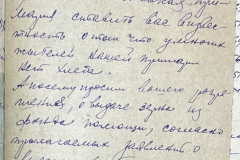 мация ставить вас в извес
тность о том что у многих
жителей нашей примации
нет хлеба.
А посему просим вашего разре
шения, о выдаче зерна из
фонда помощи, согласно
прилагаемых заявлений о